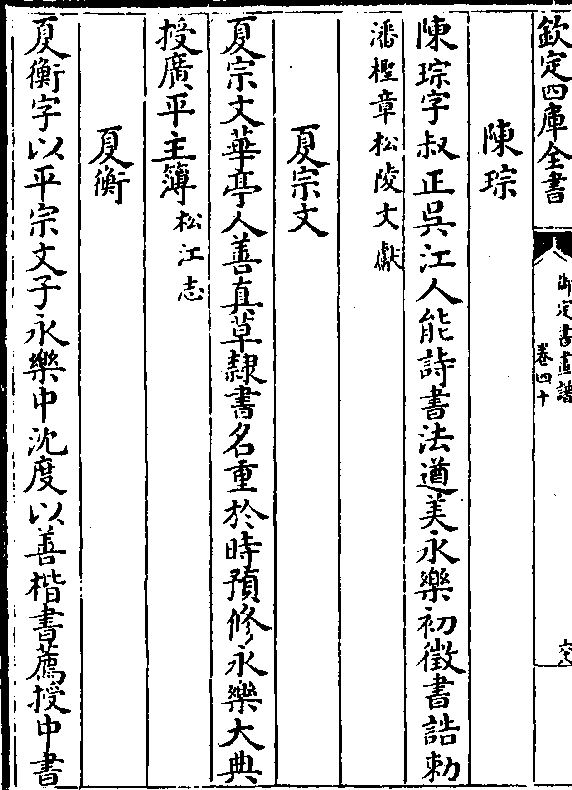 欽定四庫全書
御定書畫譜
卷四十
陳琮
陳琮字叔正吳江人能詩書法遒美永樂初徵書誥勅
潘檉章松陵文獻
夏宗文
夏宗文華亭人善真草隸書名重於時預修永樂大典
授廣平主簿松江志
夏衡
夏衡字以平宗文子永樂中沈度以善楷書薦授中書